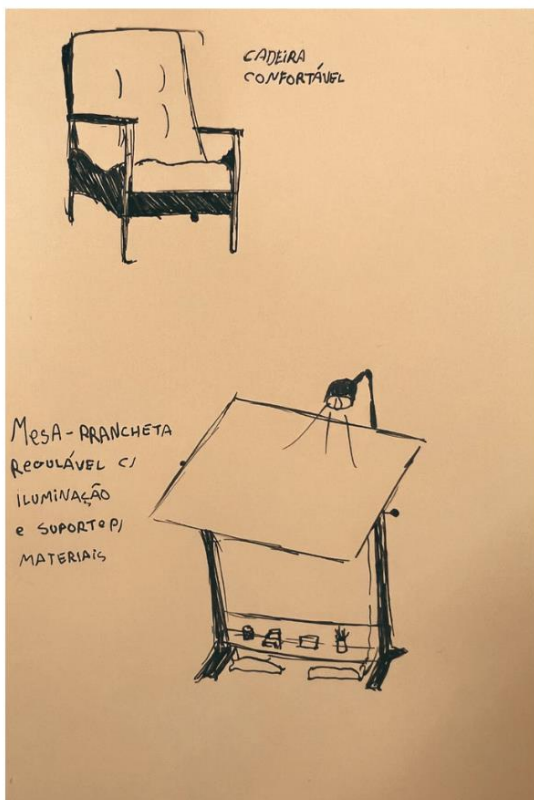 CADEIRA
CONFORTÁVEL
MESA-PRANCHETA
REGULÁVEL C/
ILUMINAÇÃO
e SUPORTe P/
MATERIAIS